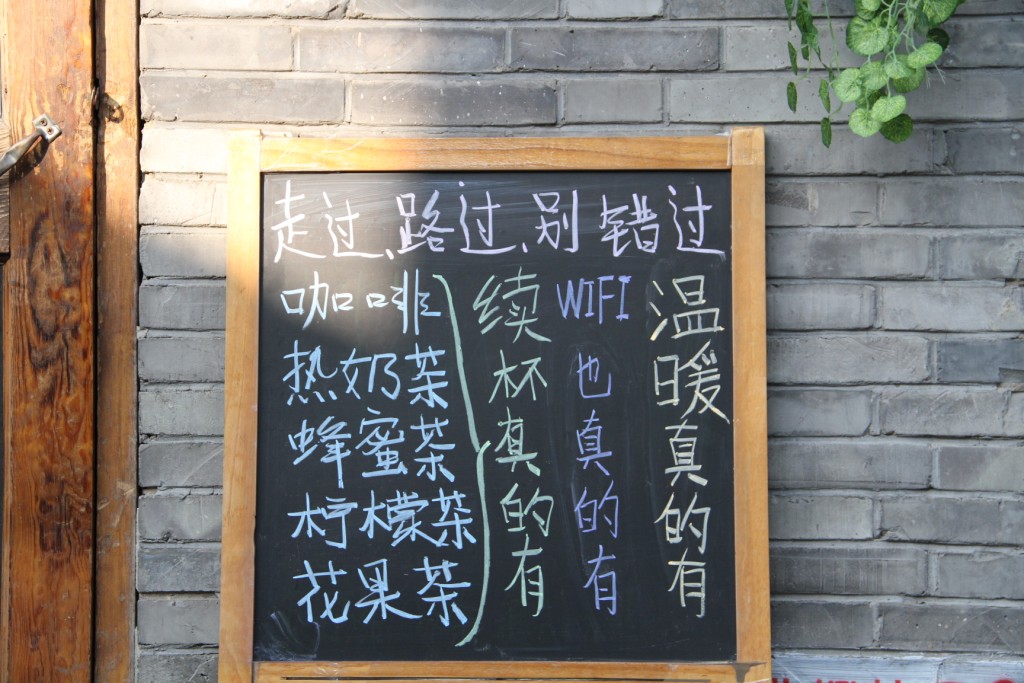 走过、路过、别错过
咖啡
热奶茶
蜂蜜茶
柠檬茶
花果茶
续杯真的有
WIFI也真的有
温暖真的有